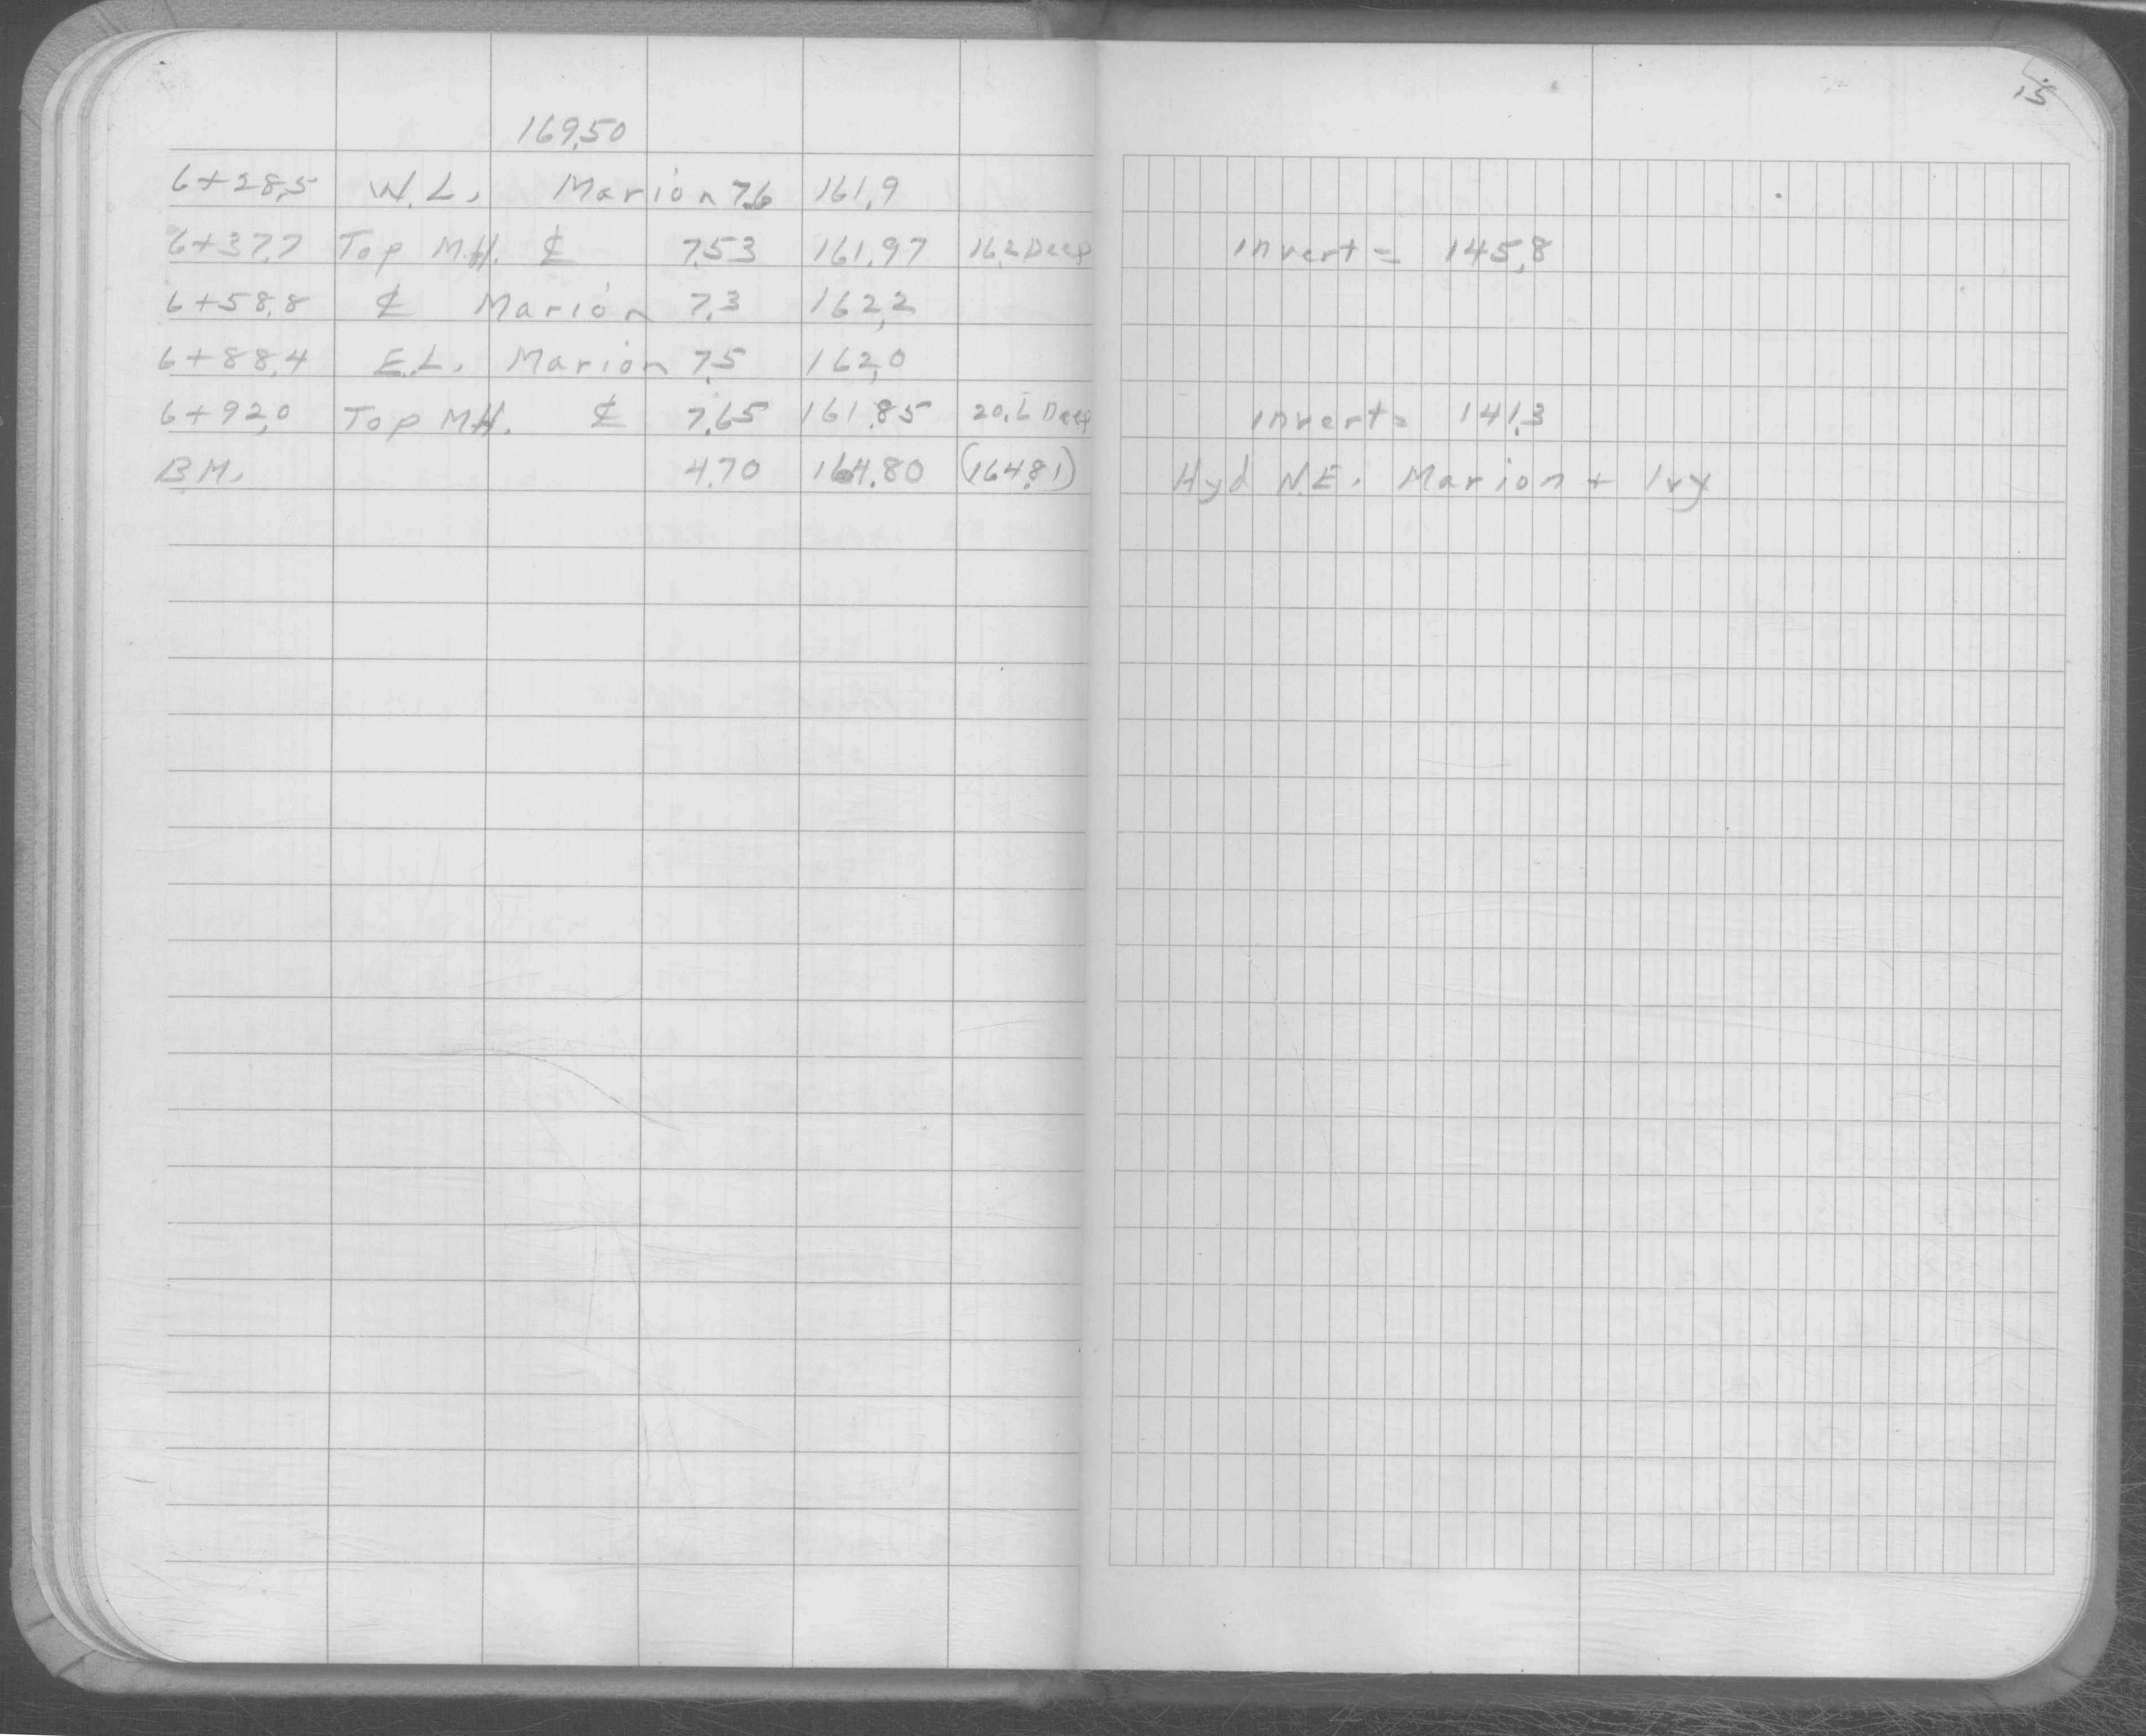 15
169.50
6+28.5 W.L. Marion 7.6 161.9
6+37.7 Top M.H. ℄ 7.53 161.97 16.2 Deep invert = 145.8
6+58.8 ℄ Marion 7.3 162.2
6+88.4 E.L. Marion 7.5 162.0
6+92.0 Top M.H. ℄ 7.65 161.85 20.6 Deep invert = 141.3
B.M. 4.70 164.80 (164.81) Hyd N.E. Marion + Ivy